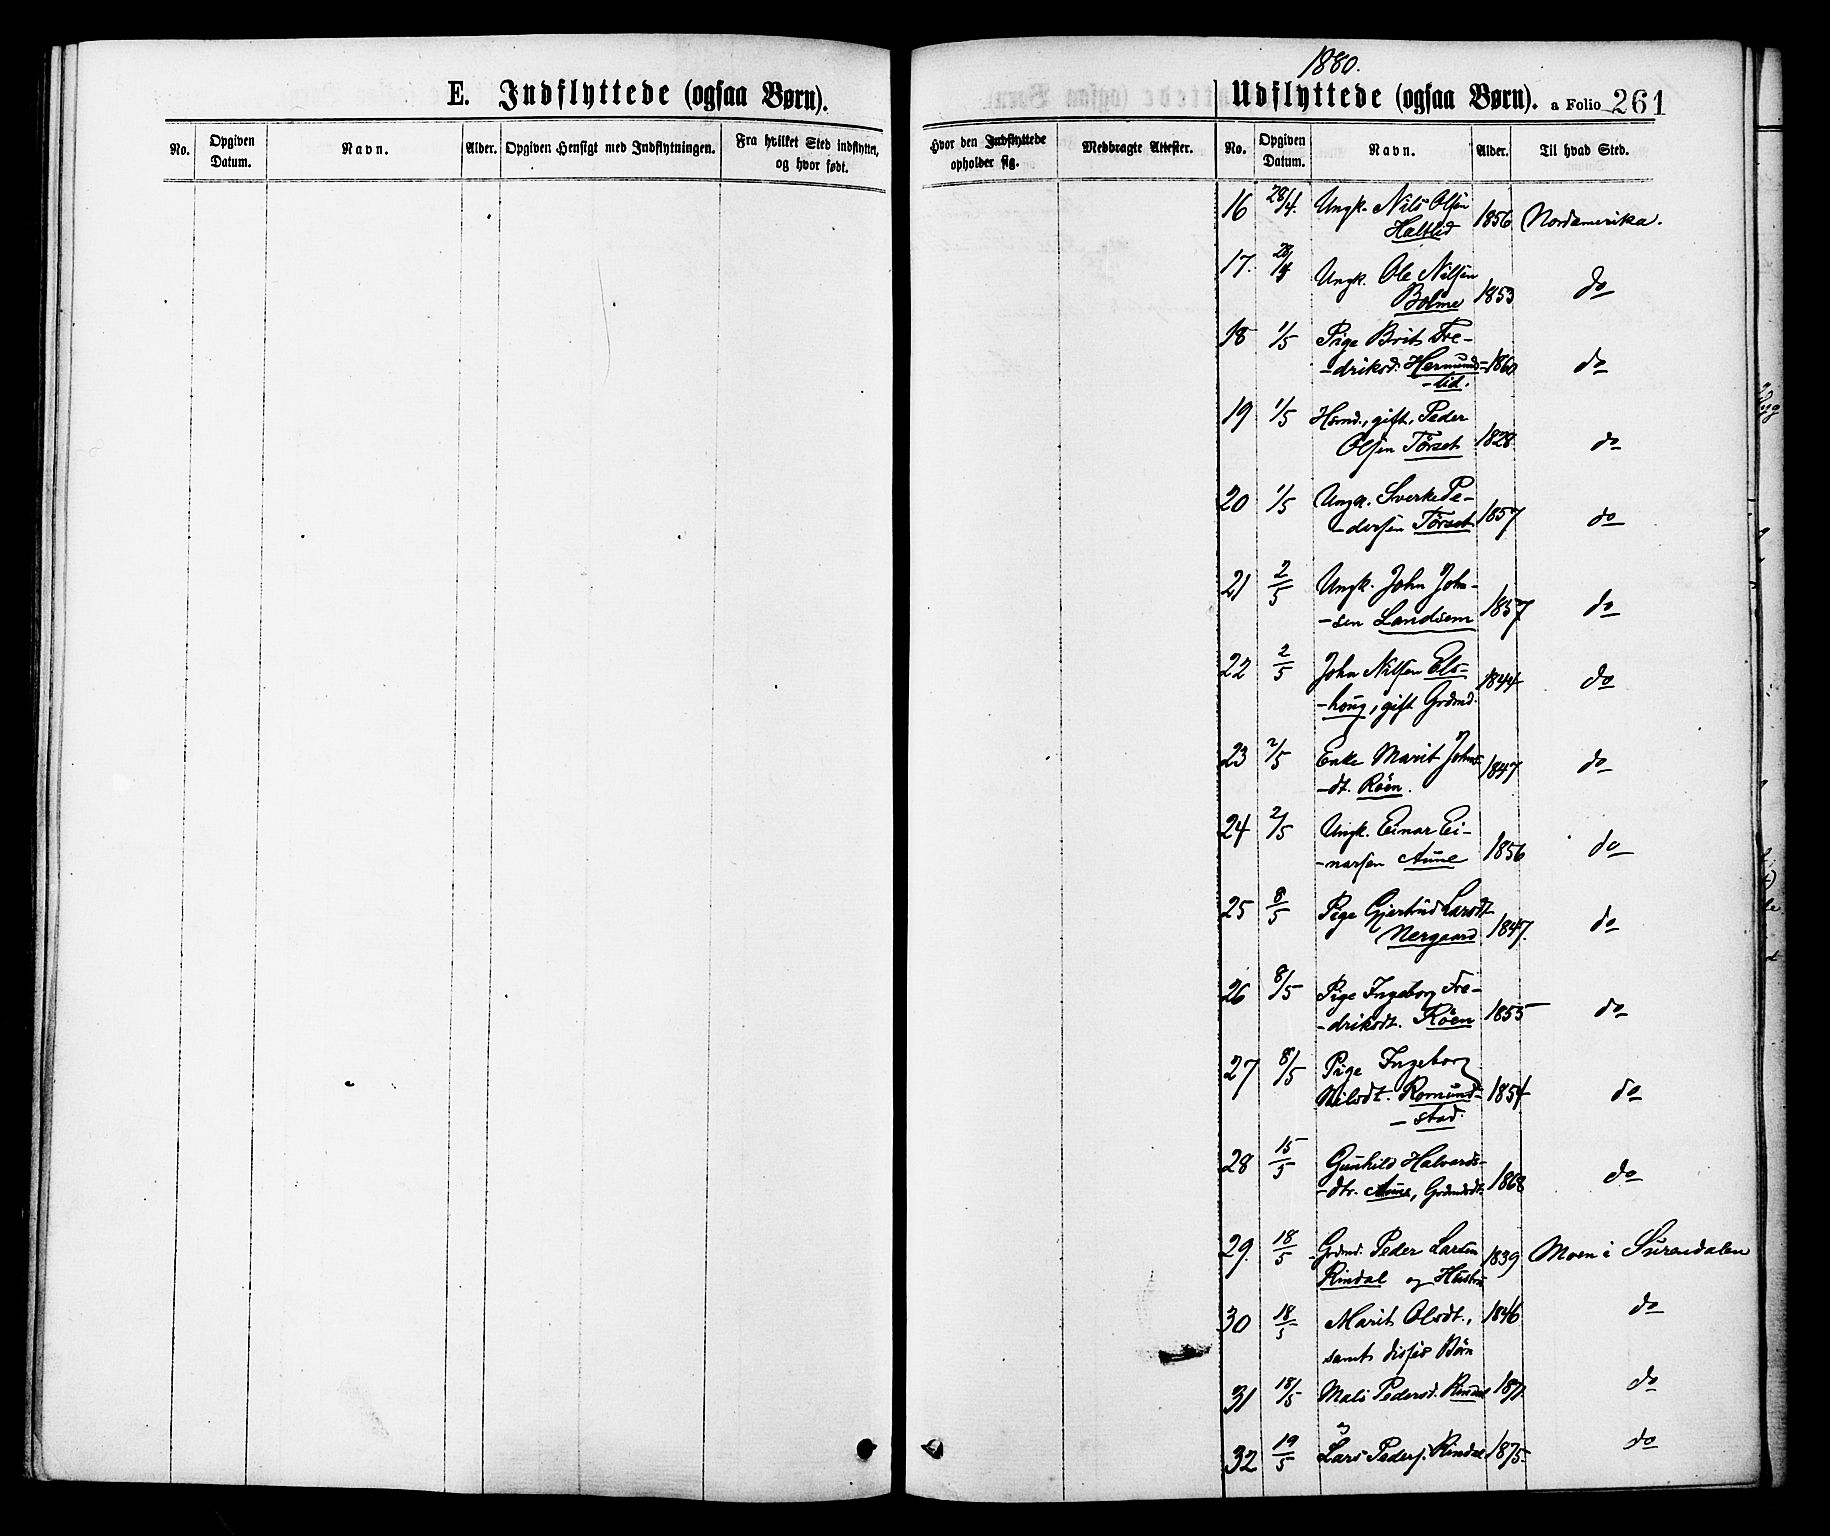 E. Indflyttede (ogsaa Børn).
No. Opgiven Datum. Navn. Alder. Opgiven Hensigt med Indflytningen. Fra hvilket Sted indflyttet, og hvor født.
1880.
Udflyttede (ogsaa Børn). a Folio 261
Hvor den Indflyttede opholder sig. Medbragte Attester. No. Opgiven Datum. Navn. Alder. Til hvad Sted.
16 28/4. Ungk. Nils Olsen
Haltlid 1856 Nordamerika.
17. 28/4 Ungk. Ole Nilsen
Bolme 1853 do
18 1/5 Pige Brit Fre-
-driksd. Hermunds- 1860 do
-lid.
19 1/5 Hsmd., gift, Peder
Olsen Törset 1828 do
20 1/5 Ungk. Sverke Pe-
-dersen Törset 1857 do
21 2/5 Ungk. John John-
-sen Landsem 1857 do
22 2/5 John Nilsen Els-
-houg, gift Grdmd. 1844 do
23 2/5 Enke Marit Johns-
-dt. Röen. 1847 do
24 2/5 Ungk. Einar Ei-
-narsen Aune 1856 do
25 8/5 Pige Gjertrud Larsdt
Nergaard 1847. do
26 8/5 Pige Ingeborg Fre-
-driksdt. Röen 1855 do
27 8/5 Pige Ingeborg
Nilsdt. Romund- 1854 do
-stad.
28 15/5 Gunhild Halvards-
-dtr. Aune, Grdmdsdt. 1868 do
29. 18/5 Grdmd. Peder Larsen
Rindal og Hustru 1839 Moen i Surendalen
30 18/5 Marit Olsdt., 1846 do
samt disses Börn
31 18/5 Mali Pedersd. Rindal 1871. do
og
32 19/5 Lars Peders. Rindal 1875 do